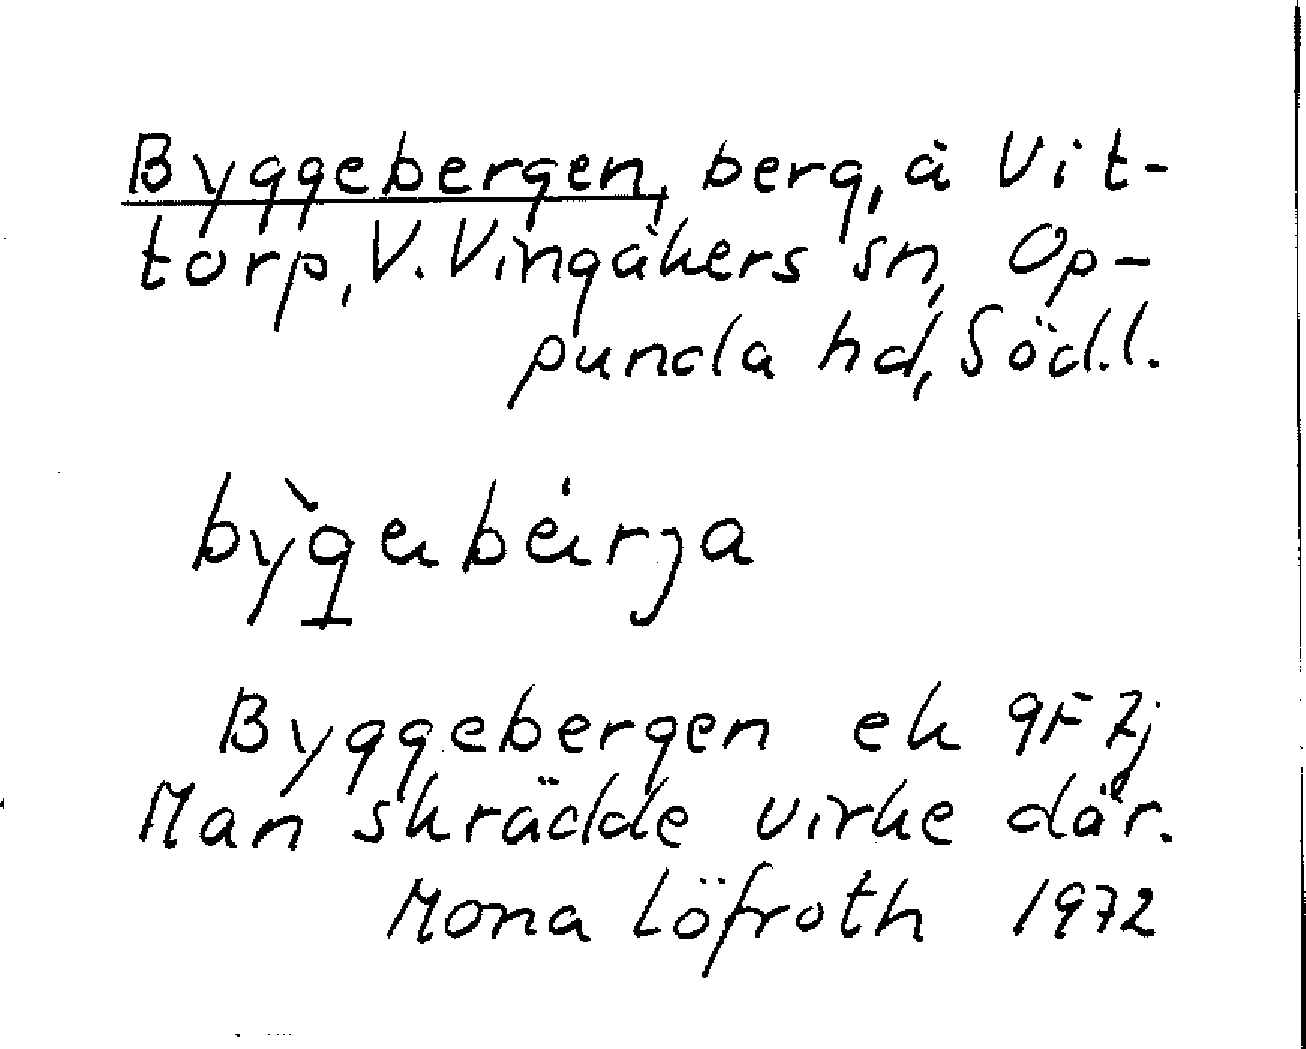 Byggebergen, berg, å Vit-
torp, V. Vingåkers sn, Op-
punda hd, Södl.
Byggebergen ek 9F 7j
Man skrädde virke där.
Mona Löfroth 1972